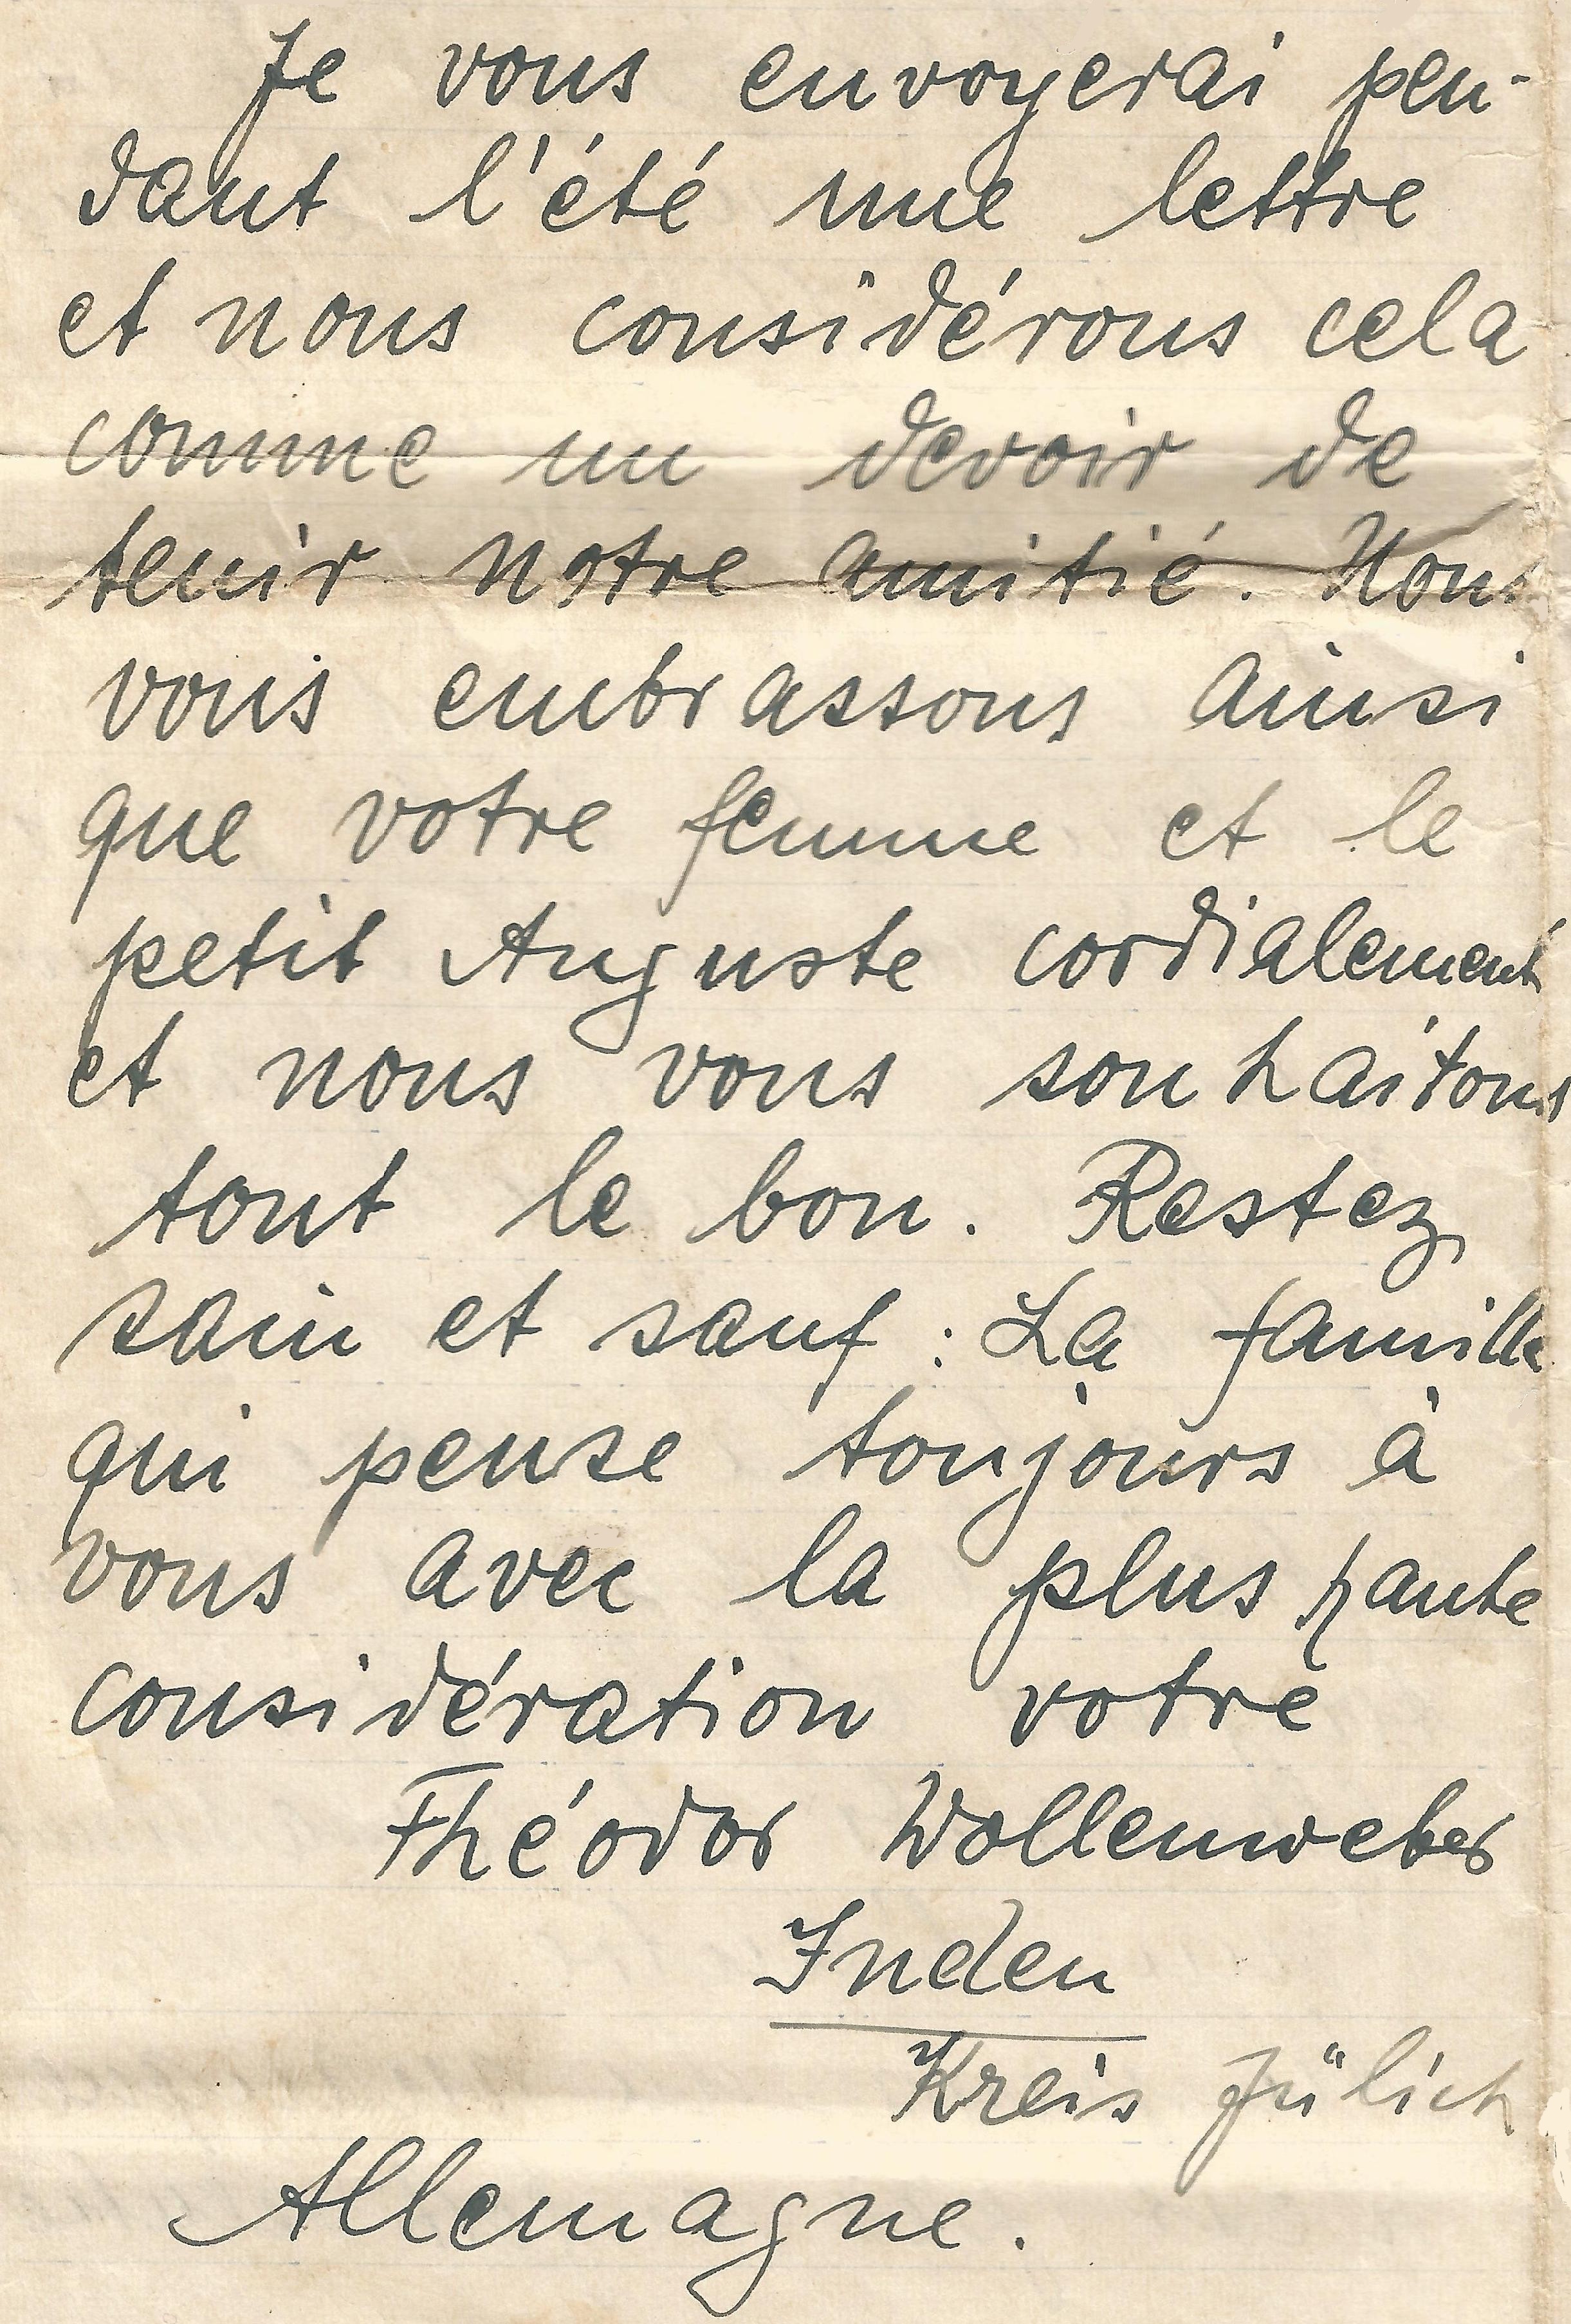 Je vous envoyerai pen-
dant l'été une lettre
et nous considérons cela
comme un devoir de
tenir notre amitié. Nous
vous embrassons ainsi
que votre femme et le
petit Auguste cordialement
et nous vous souhaitons
tout le bon. Restez
sain et sauf : La famille
qui pense toujours à
vous avec la plus haute
considération votre
Théodor Wollenweber
Inden
Kreis Jülich
Allemagne.